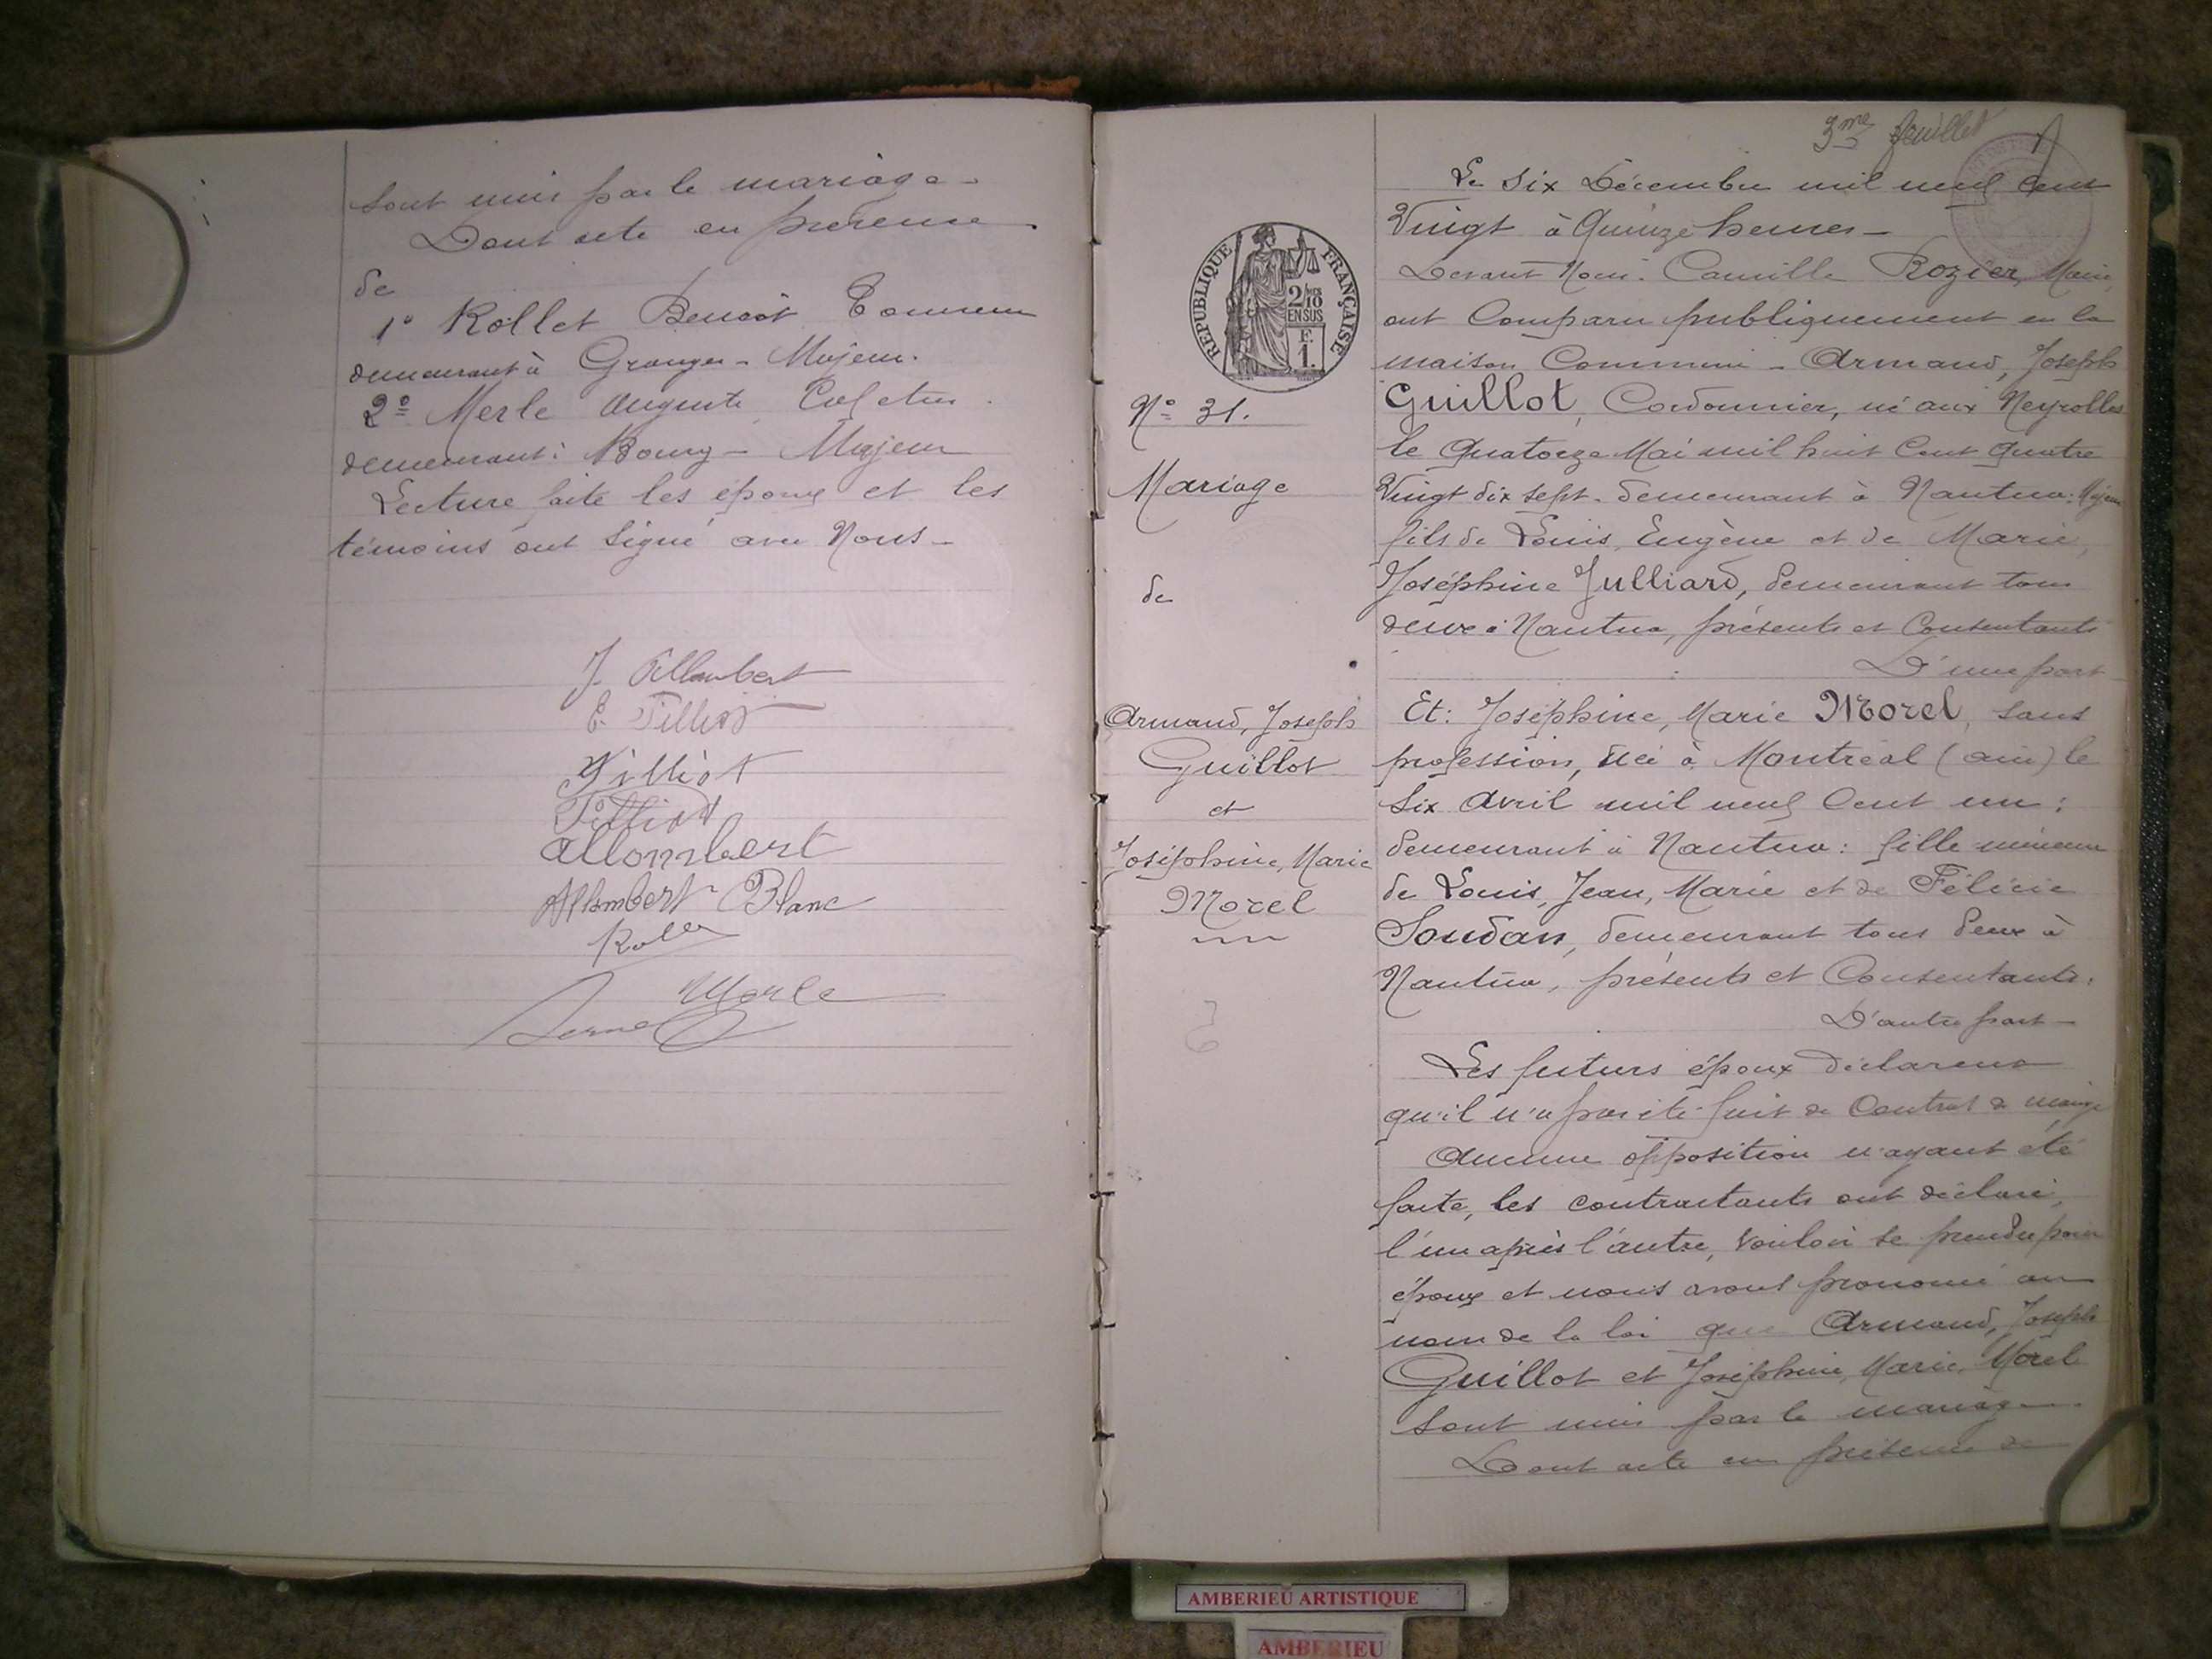 sont unis par le mariage -
Dont acte en présence
de
1° Rollet Benoît
demeurant à Granges - Majeur.
2º Merle Auguste Cafetier.
demeurant à Bourg - Majeur
Lecture faite les époux et les
témoins ont signé avec Nous -
J. Allombert
E. Tilliot
Tilliot
Tilliot
Allombert
Allombert Blanc
Rollet
Merle
3me feuillet
Le Six Décembre mil neuf cent
Vingt à Quinze heures -
Devant Nous. Camille Rozier, Maire,
ont Comparu publiquement en la
maison Commune - Armand, Joseph
Guillot, Cordonnier, né aux Neyrolles
le Quatorze Mai mil huit Cent quatre
Vingt dix sept. demeurant à Nantua: Majeur
fils de Louis, Eugène et de Marie,
Joséphine Julliard, demeurant tous
deux à Nantua, présents et Consentants
D'une part
Et: Joséphine, Marie Morel, sans
profession, née à Montréal (ain) le
Six Avril mil neuf Cent un:
demeurant à Nantua: fille mineure
de Louis, Jean, Marie et de Félicie
Soudan, demeurant tous deux à
Nantua, présents et Consentants.
D'autre part -
Les futurs époux déclarent
qu'il n'a pas été fait de Contrat de mariage
Aucune opposition n'ayant été
faite, les contractants ont déclaré,
l'un après l'autre, vouloir se prendre pour
époux et nous avons prononcé au
nom de la loi que Armand, Joseph
Guillot et Joséphine, Marie, Morel
sont unis par le mariage.
Dont acte en présence de
REPUBLIQUE FRANÇAISE
2/10 MES
EN SUS
F.
1.
No 31.
Mariage
de
Armand, Joseph
Guillot
et
Joséphine, Marie
Morel
AMBERIEU ARTISTIQUE
AMBERIEU